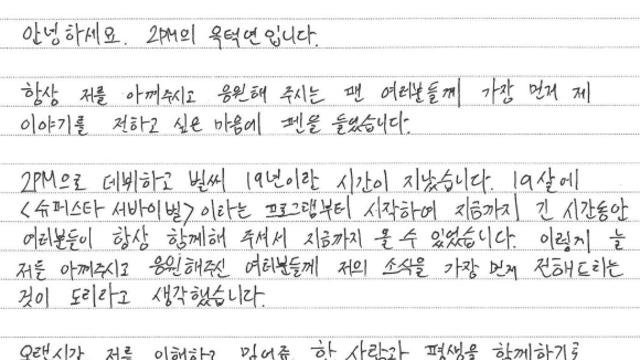 안녕하세요. 2PM의 옥택연입니다.
항상 저를 아껴주시고 응원해 주시는 팬 여러분들께 가장 먼저 제
이야기를 전하고 싶은 마음에 펜을 들었습니다.
2PM으로 데뷔하고 벌써 19년이란 시간이 지났습니다. 19살에
<슈퍼스타 서바이벌> 이라는 프로그램부터 시작하여 지금까지 긴 시간동안
여러분들이 항상 함께해 주셔서 지금까지 올 수 있었습니다. 이렇게 늘
저를 아껴주시고 응원해주신 여러분들께 저의 소식을 가장 먼저 전해드리는
것이 도리라고 생각했습니다.
오랜시간 저를 이해하고 믿어준 한 사람과 평생을 함께하기로